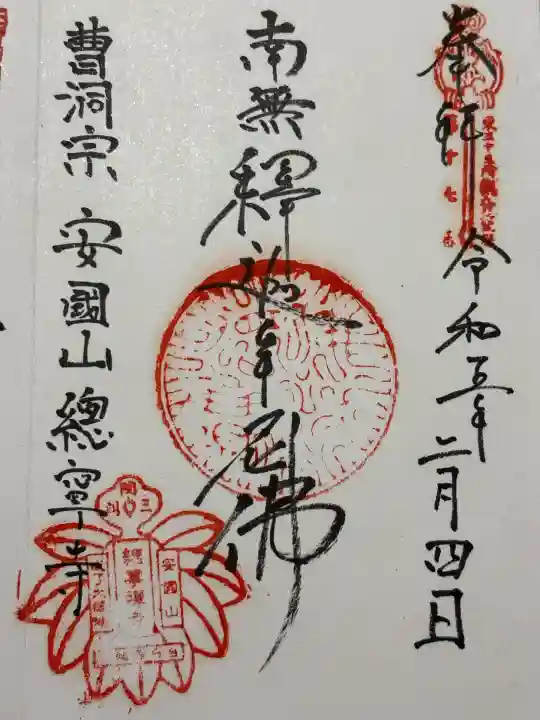 奉拝 令和五年二月四日
南無釋迦牟尼佛
曹洞宗 安國山 總寧寺
安國山